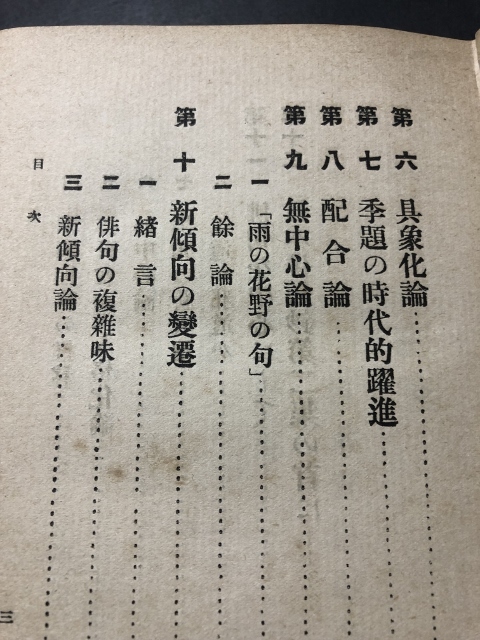 第六 具象化論
第七 季題の時代的躍進
第八 配合論
第九 無中心論
一 「雨の花野の句」
二 餘論
第十 新傾向の變遷
一 緒言
二 俳句の複雜味
三 新傾向論
目次
三